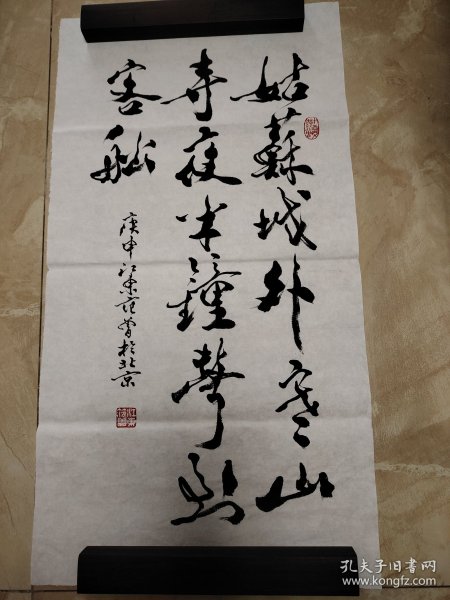 姑蘇城外寒山
寺夜半鐘聲到
客船
庚申江東范曾於北京
孔夫子旧书网
www.kongfz.com